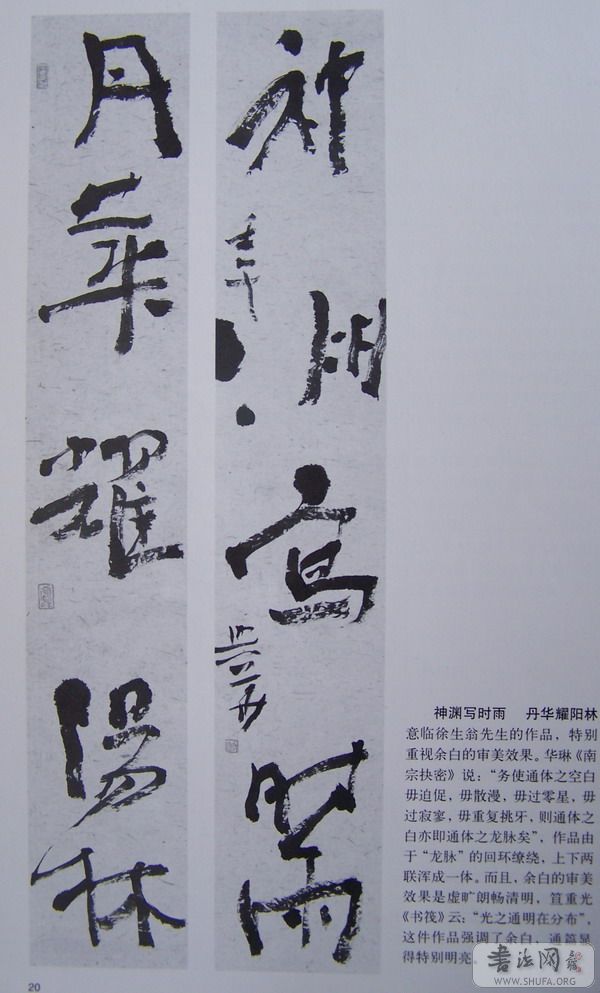 神渊寫時雨
壬午
丹華耀陽林
神渊写时雨 丹华耀阳林
意临徐生翁先生的作品，特别
重视余白的审美效果。华琳《南
宗抉密》说：“务使通体之空白
毋迫促，毋散漫，毋过零星，毋
过寂寥，毋重复挑牙，则通体之
白亦即通体之龙脉矣”，作品由
于“龙脉”的回环缭绕，上下两
联浑成一体。而且，余白的审美
效果是虚旷朗畅清明，笪重光
《书筏》云：“光之通明在分布”，
这件作品强调了余白，通篇显
得特别明亮。
20
书法网
WWW.SHUFA.ORG